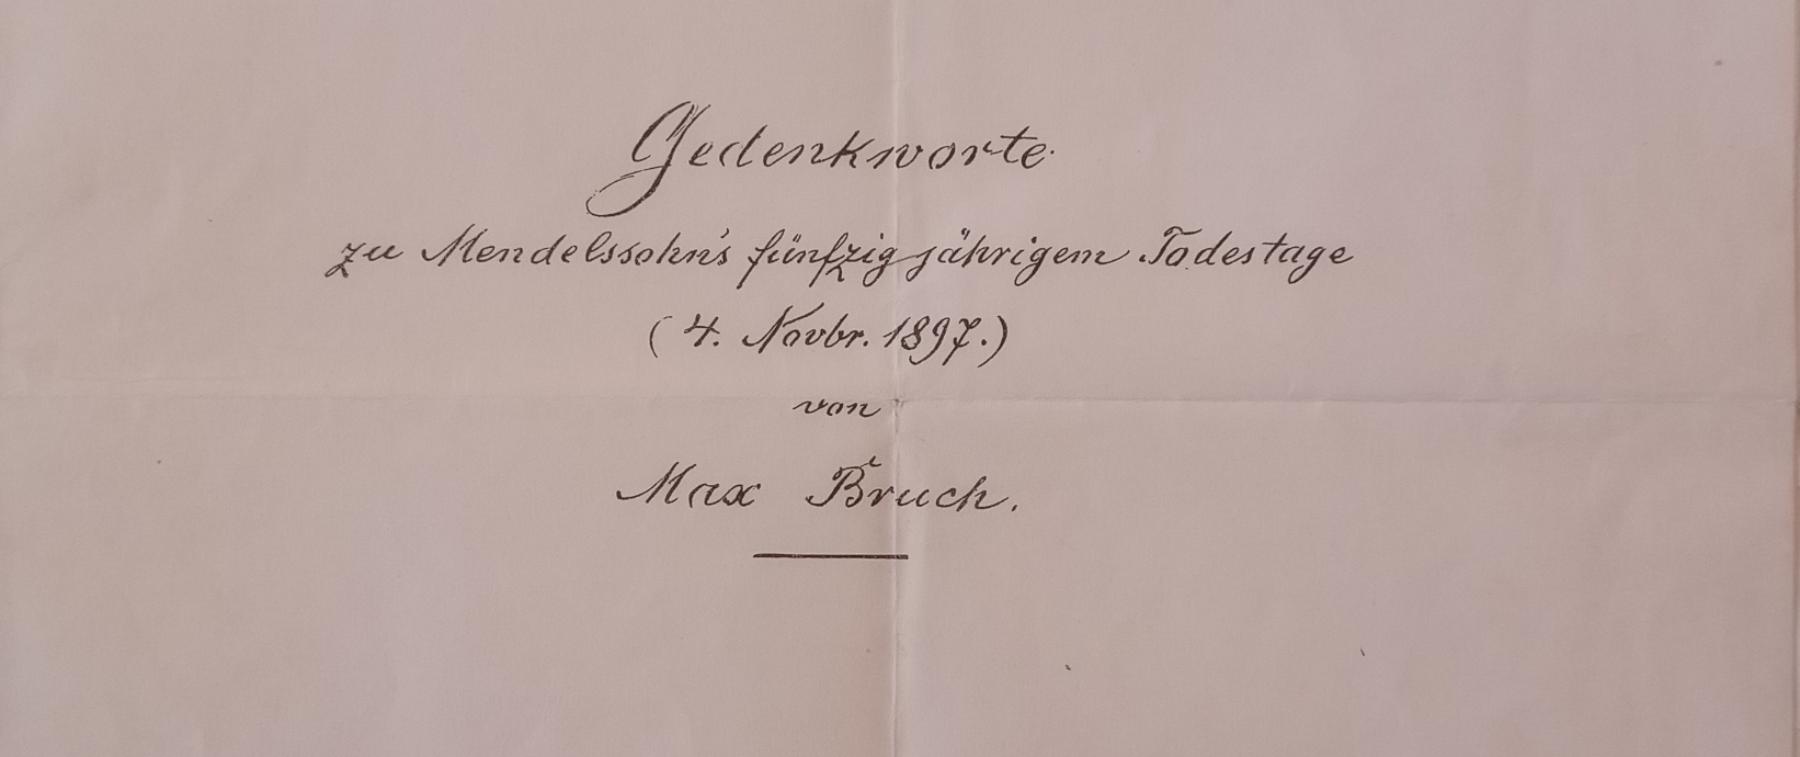 Gedenkworte
zu Mendelssohn's fünfzigjährigem Todestage
(4. Novbr. 1897.)
von
Max Bruch.